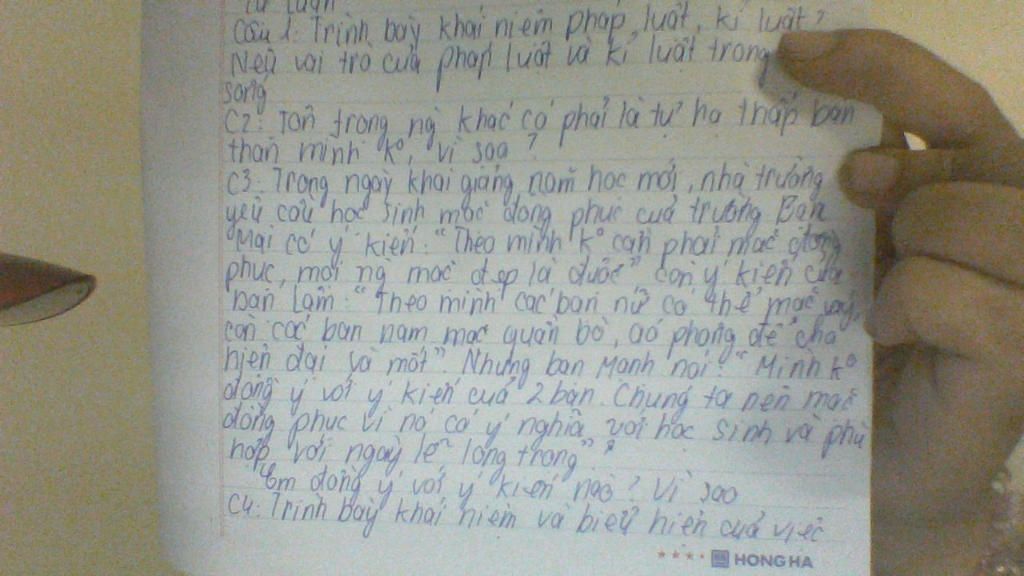 Tự luận
Câu 1: Trình bày khái niệm pháp luật, kỉ luật?
Nêu vai trò của pháp luật và kỉ luật trong
sống
C2: Tôn trọng ng khác có phải là tự hạ thấp bản
thân mình kº, vì sao?
C3: Trong ngày khai giảng năm học mới, nhà trường
yêu cầu học sinh mặc đồng phục của trường. Bạn
Mai có ý kiến: "Theo mình kº cần phải mặc đồng
phục, mọi ng mặc đẹp là được" còn ý kiến của
bạn Lâm: "Theo mình các bạn nữ có thể mặc váy,
còn các bạn nam mặc quần bò, áo phông để cho
hiện đại và mốt". Nhưng bạn Mạnh nói: "Mình kº
đồng ý với ý kiến của 2 bạn. Chúng ta nên mặc
đồng phục vì nó có ý nghĩa với học sinh và phù
hợp với ngày lễ long trọng"?
Em đồng ý với ý kiến nào? Vì sao
C4: Trình bày khái niệm và biểu hiện của việc
HONG HA